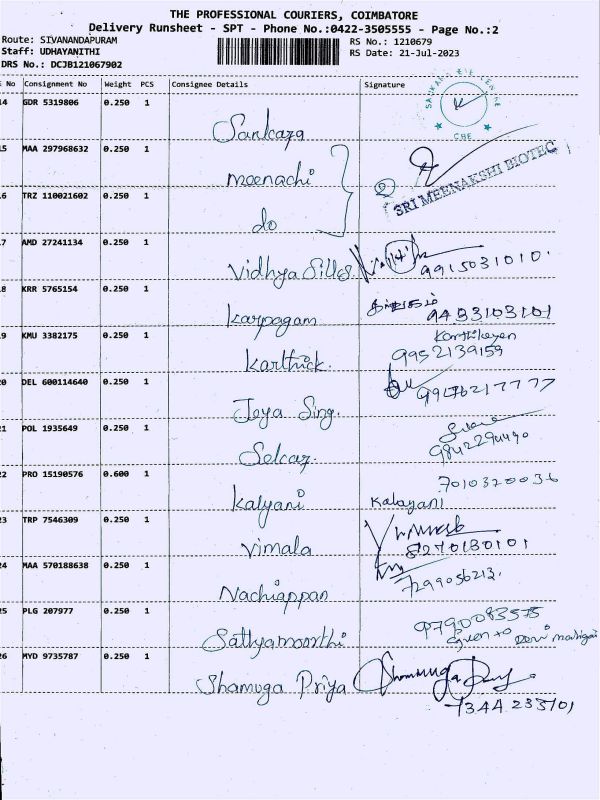 THE PROFESSIONAL COURIERS, COIMBATORE
Delivery Runsheet - SPT - Phone No.:0422-3505555 - Page No.:2
Route: SIVANANDAPURAM RS No.: 1210679
Staff: UDHAYANITHI RS Date: 21-Jul-2023
DRS No.: DCJB121067902
No Consignment No Weight PCS Consignee Details Signature
14 GDR 5319806 0.250 1
Sankara
CBE
15 MAA 297968632 0.250 1
meenachi
SRI MEENAKSHI BIOTEC
16 TRZ 110021602 0.250 1
do
17 AMD 27241134 0.250 1
Vidhya Silks. 9915031010.
18 KRR 5765154 0.250 1
Karpagam 9433103101
19 KMU 3382175 0.250 1 Karthikeyen
Karthick. 9952139159
20 DEL 600114640 0.250 1
Jeya Sing.
21 POL 1935649 0.250 1
Selcaz. 9842294490
22 PRO 15190576 0.600 1 7010320036
Kalyani Kalayani
23 TRP 7546309 0.250 1
Vimala 8270130101
24 MAA 570188638 0.250 1
Nachiappan 7299056213.
25 PLG 207977 0.250 1 9790083575
Sathyamoorthi Given to Devi
26 MYD 9735787 0.250 1
Shamuga Priya Shamuga Priya
7344 233101